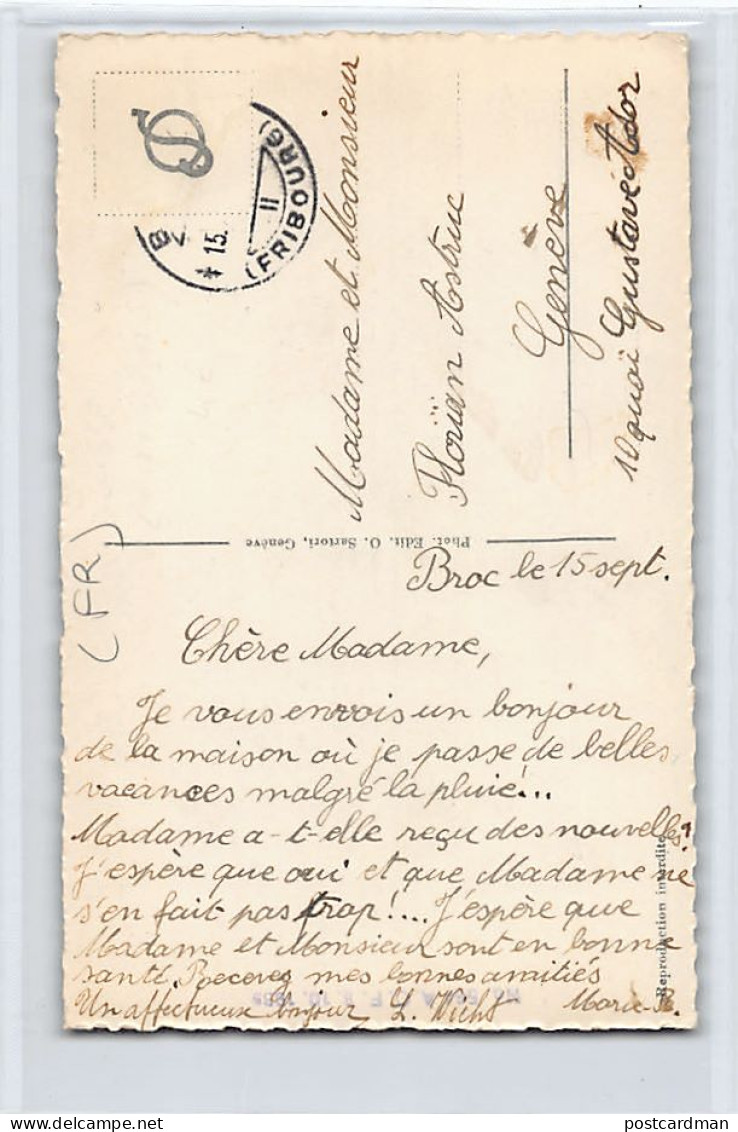 B
15.
II
(FRIBOURG)
Madame et Monsieur
Florian Astruc
Genève
10 quai Gustave Ador
Phot. Edit. O. Sartori, Genève
(FR)
Broc le 15 sept.
Chère Madame,
Je vous envois un bonjour
de la maison où je passe de belles
vacances malgré la pluie!...
Madame a-t-elle reçu des nouvelles?
J'espère que oui et que Madame ne
s'en fait pas trop!... J'espère que
Madame et Monsieur sont en bonne
santé. Recevez mes bonnes amitiés
Un affectueux bonjour Marie
Reproduction interdite
postcardman